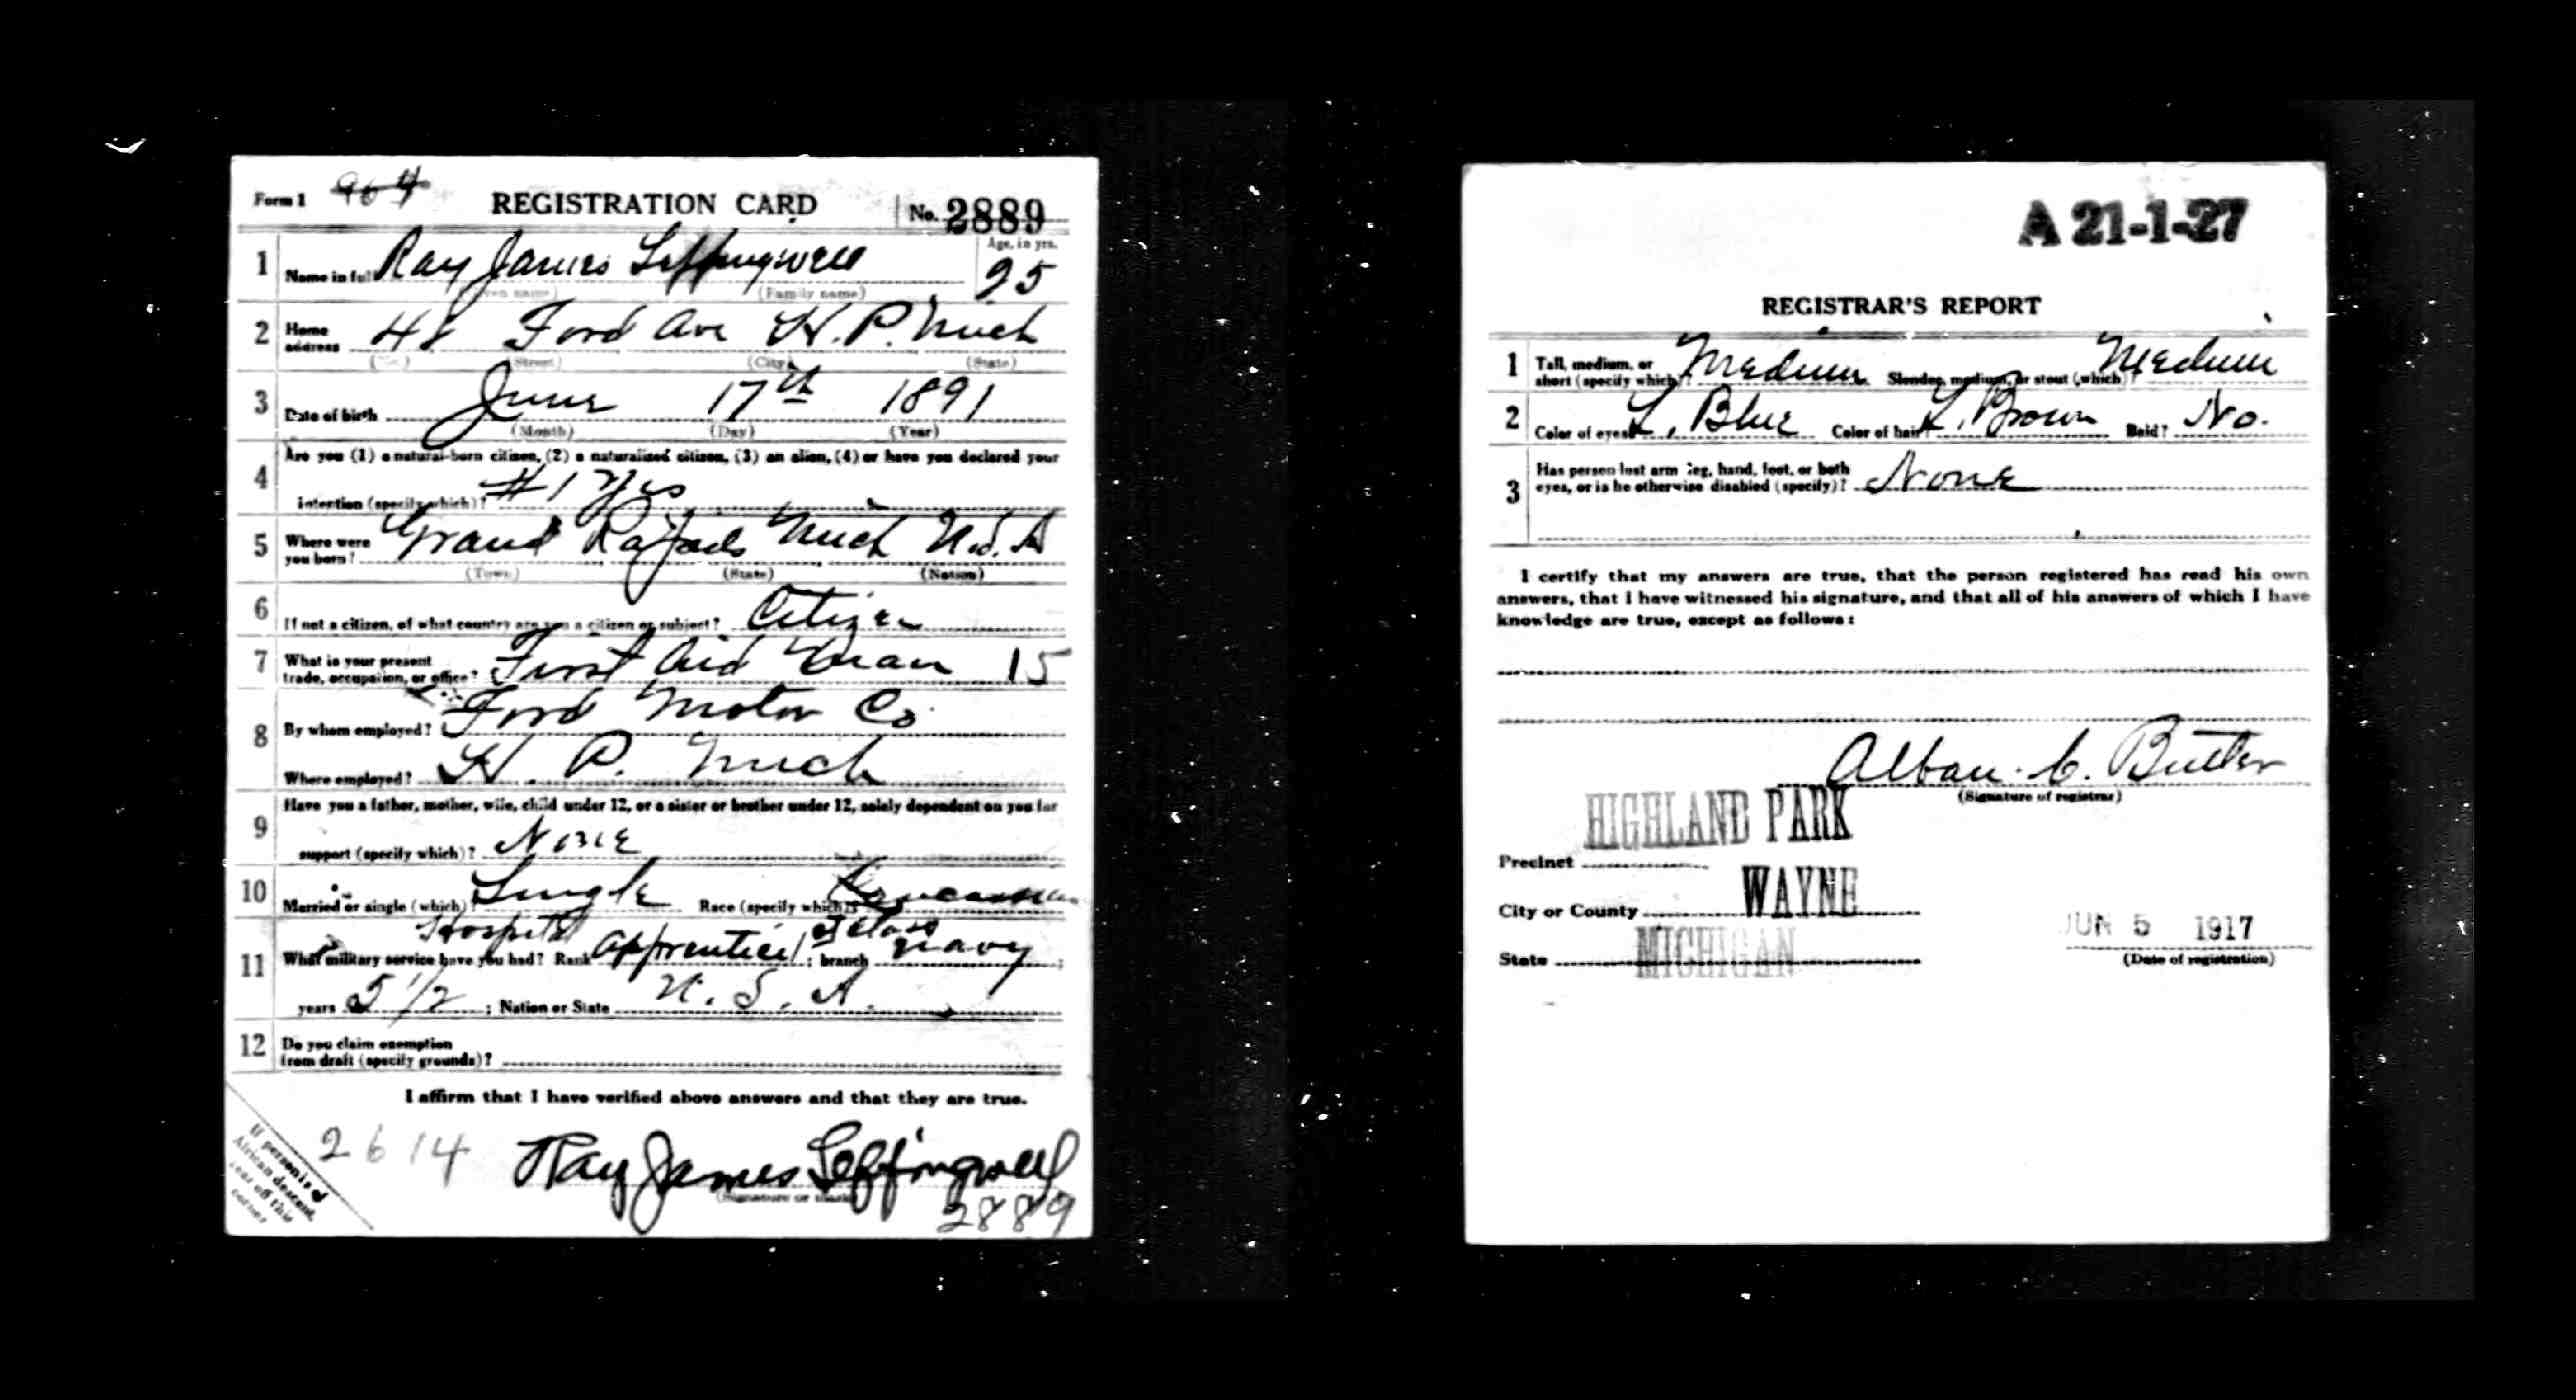 Form 1 964 REGISTRATION CARD No. 2889
1 Name in full Ray James Leffingwell Age, in yrs. 25
(Given name) (Family name)
2 Home address 48 Ford Ave H. P. Mich
(No.) (Street) (City) (State)
3 Date of birth June 17th 1891
(Month) (Day) (Year)
4 Are you (1) a natural-born citizen, (2) a naturalized citizen, (3) an alien, (4) or have you declared your
intention (specify which)? #1 Yes
5 Where were you born? Grand Rapids Mich U.S.A
(Town) (State) (Nation)
6 If not a citizen, of what country are you a citizen or subject? Citizen
7 What is your present trade, occupation, or office? First Aid Man 15
8 By whom employed? Ford Motor Co
Where employed? H P. Mich
9 Have you a father, mother, wife, child under 12, or a sister or brother under 12, solely dependent on you for
support (specify which)? None
10 Married or single (which)? Single Race (specify which)? Caucasian
11 What military service have you had? Rank Hospital Apprentice 1st Class; branch Navy;
years 5 1/2; Nation or State U. S. A.
12 Do you claim exemption from draft (specify grounds)?
I affirm that I have verified above answers and that they are true.
If person is of African descent, tear off this corner
2614 Ray James Leffingwell
(Signature or mark)
2889
A 21-1-27
REGISTRAR'S REPORT
1 Tall, medium, or short (specify which)? Medium Slender, medium, or stout (which)? Medium
2 Color of eyes? L. Blue Color of hair? L. Brown Bald? No.
3 Has person lost arm, leg, hand, foot, or both eyes, or is he otherwise disabled (specify)? None
I certify that my answers are true, that the person registered has read his own
answers, that I have witnessed his signature, and that all of his answers of which I have
knowledge are true, except as follows:
Alban C. Butler
(Signature of registrar)
Precinct HIGHLAND PARK
City or County WAYNE
State MICHIGAN
JUN 5 1917
(Date of registration)